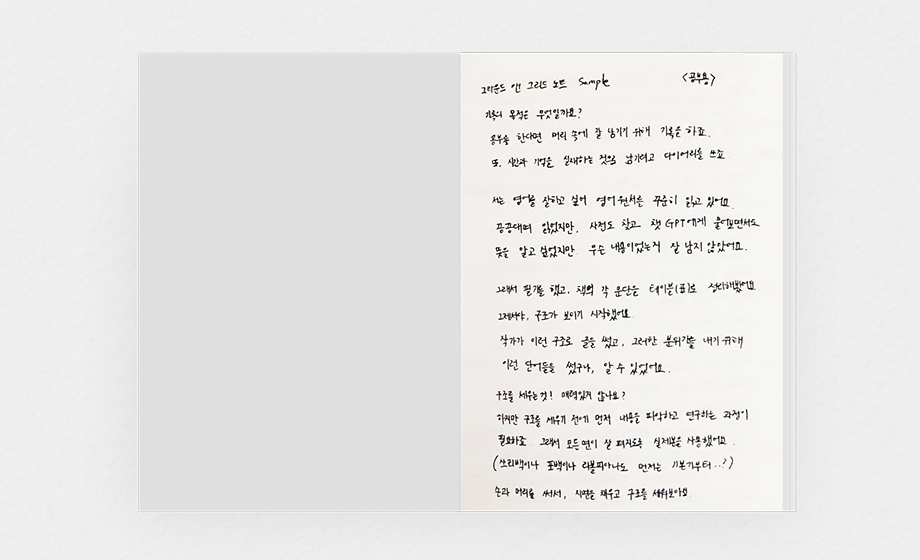 그라운드 앤 그리드 노트 Sample <공부용>
기록의 목적은 무엇일까요?
공부를 한다면 머리 속에 잘 남기기 위해 기록을 하죠.
또, 시간과 기억을 실재하는 것으로 남기려고 다이어리를 쓰죠
저는 영어를 잘하고 싶어 영어 원서를 꾸준히 읽고 있어요.
끙끙대며 읽었지만, 사전도 찾고 챗 GPT에게 물어보면서도
뜻을 알고 싶었지만 무슨 내용이었는지 잘 남지 않았어요.
그래서 필기를 했고, 책의 각 문단을 테이블(표)로 정리해봤어요
그제서야, 구조가 보이기 시작했어요.
작가가 이런 구조로 글을 썼고, 그러한 분위기를 내기 위해
이런 단어들을 썼구나, 알 수 있었어요.
구조를 세우는 것! 매력있지 않나요?
하지만 구조를 세우기 전에 먼저 내용을 파악하고 연구하는 과정이
필요하죠 그래서 모든 면이 잘 펴지도록 실제본을 사용했어요.
(쓰리백이나 포백이나 라볼피아나도 먼저는 기본기부터..?)
손과 머리를 써서, 지면을 채우고 구조를 세워보아요